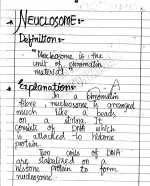 NEUCLOSOME:-
Definition:-
"Nucleosome is the
unit of chromatin
material."
Explanation:-
In a chromatin
fibre nucleosome is arranged
much like a beads
on a string. It
consists of DNA which
is attached to histone
protein.
Two coils of DNA
are stabalized on a
histone protein to form
nucleosome.